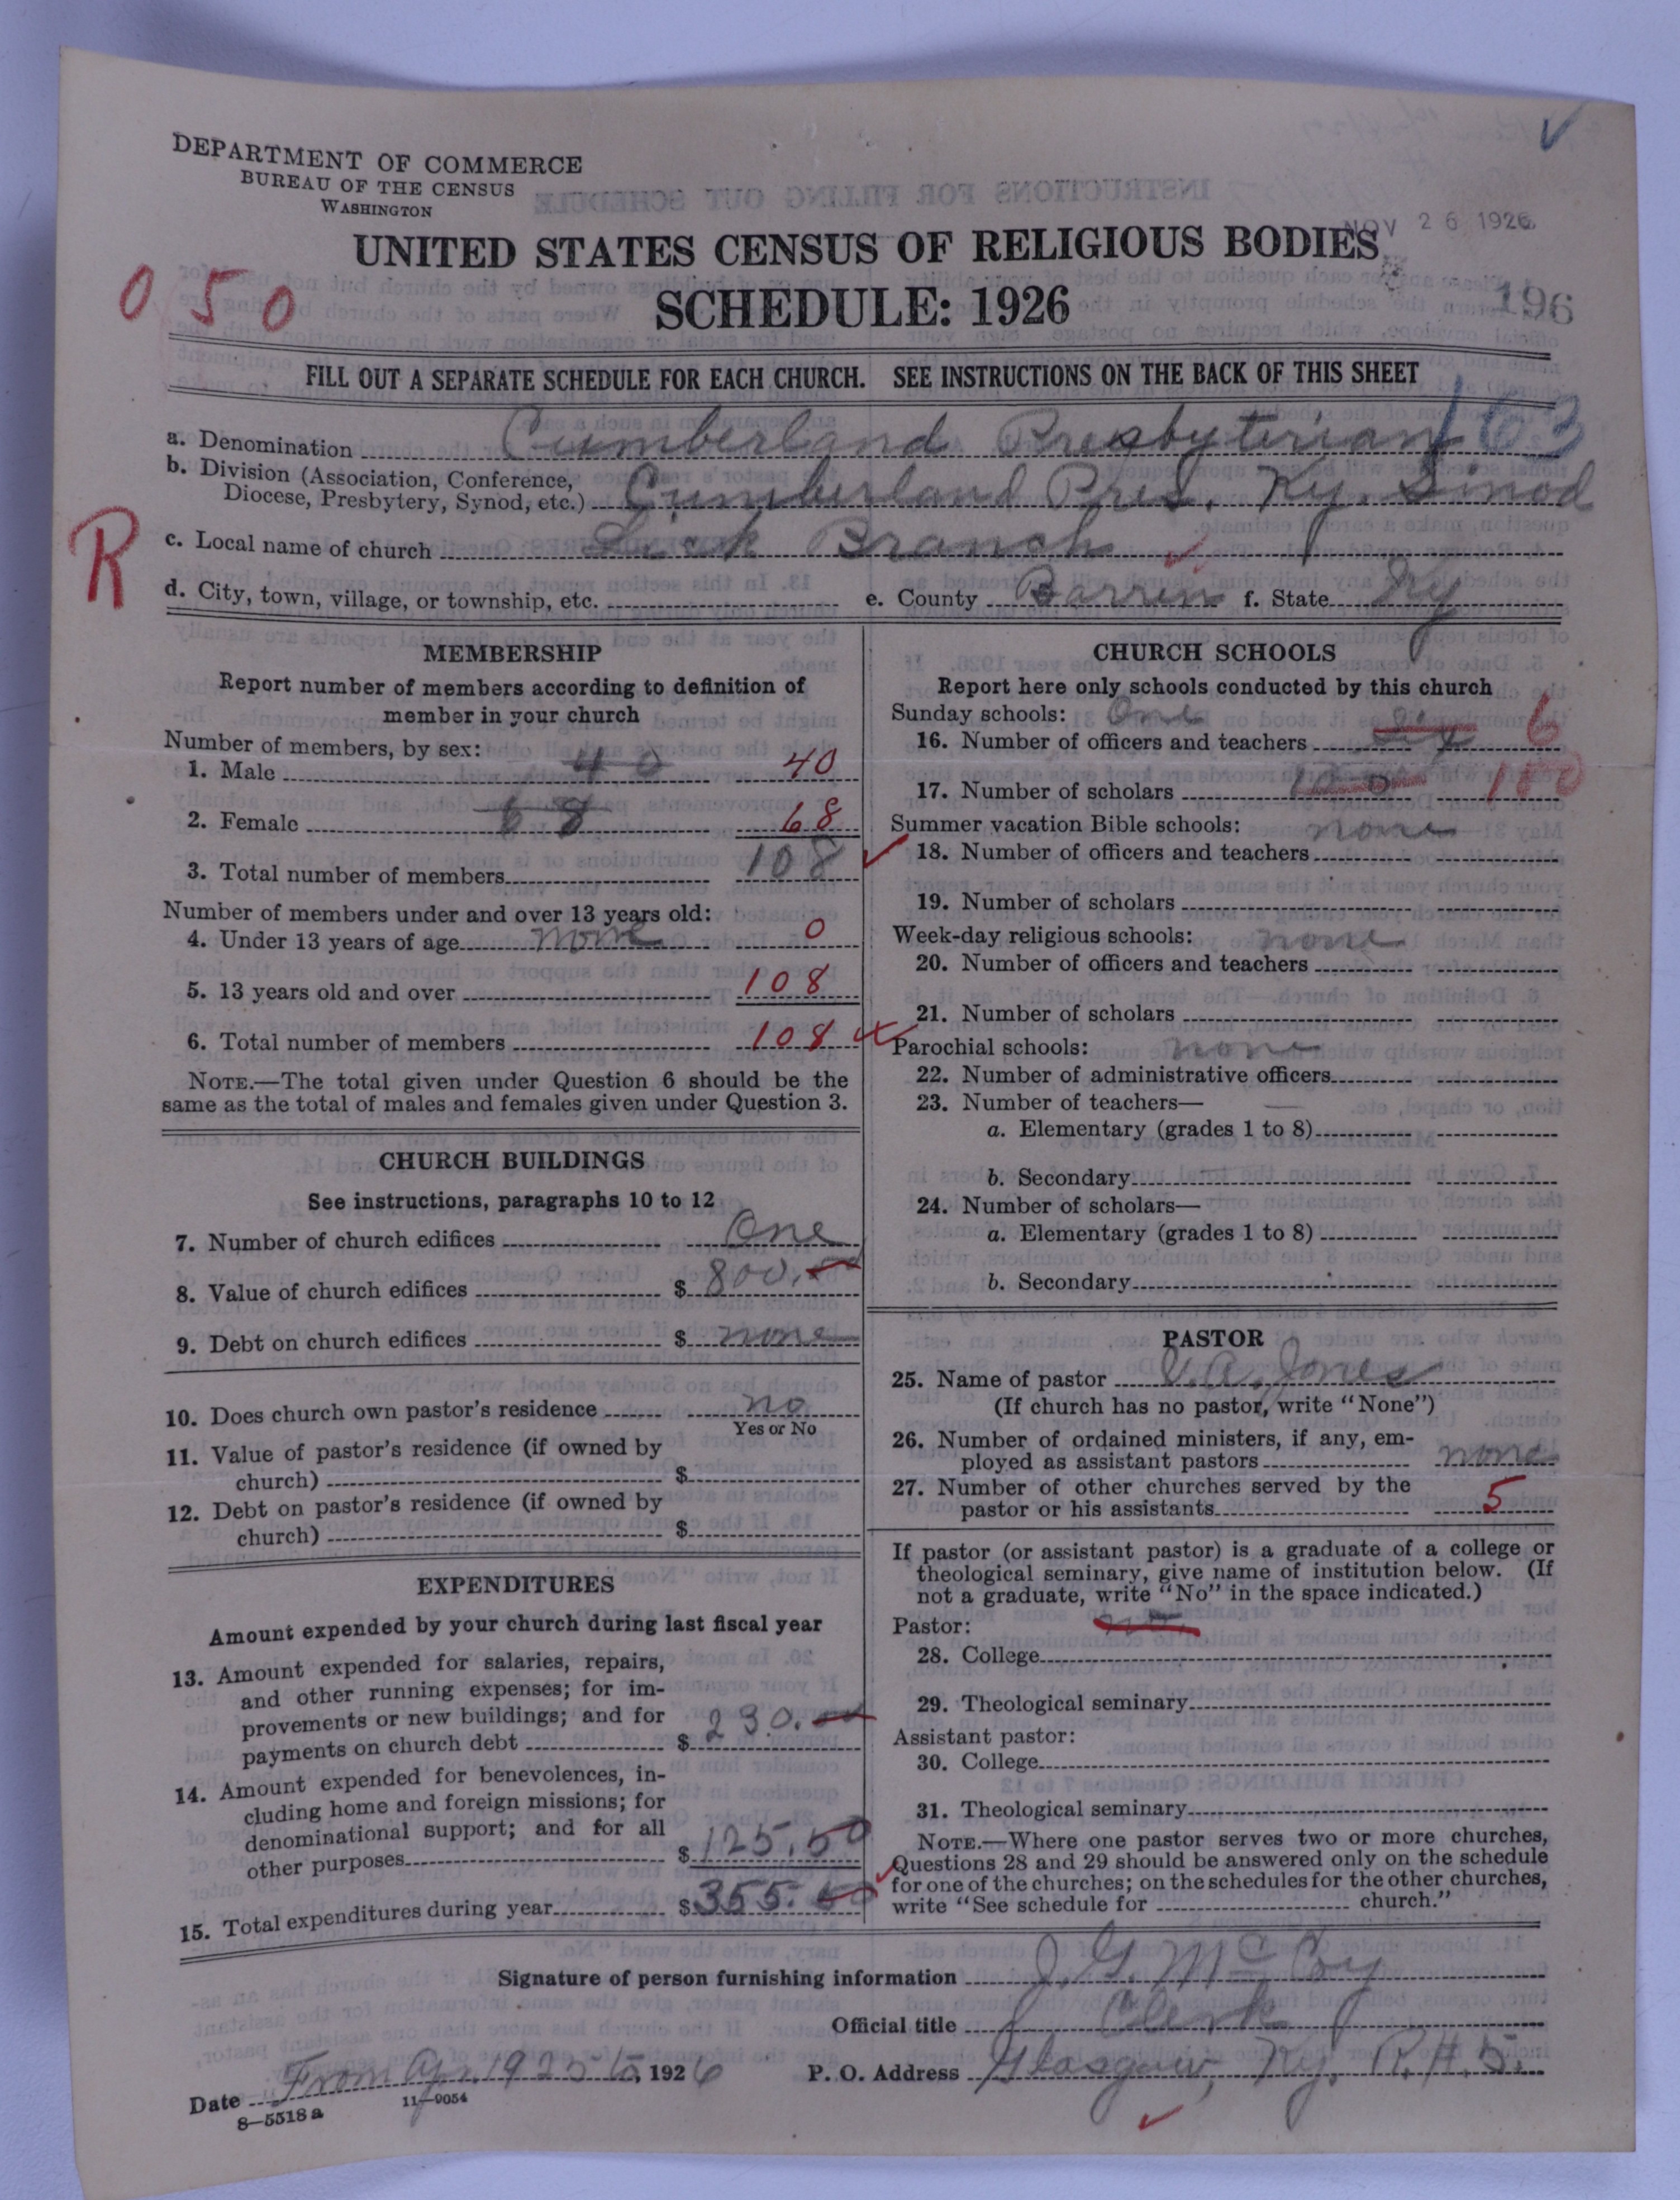 DEPARTMENT OF COMMERCE
BUREAU OF THE CENSUS
WASHINGTON
NOV 26 1926
UNITED STATES CENSUS OF RELIGIOUS BODIES
SCHEDULE: 1926
050
196
FILL OUT A SEPARATE SCHEDULE FOR EACH CHURCH. SEE INSTRUCTIONS ON THE BACK OF THIS SHEET
163
a. Denomination Cumberland Presbyterian
b. Division (Association, Conference,
Diocese, Presbytery, Synod, etc.) Cumberland Pres. Ky. Sinod
R
c. Local name of church Lick Branch
d. City, town, village, or township, etc. e. County Barren f. State Ky
MEMBERSHIP
Report number of members according to definition of
member in your church
Number of members, by sex:
1. Male 40 40
2. Female 68 68
3. Total number of members 108
Number of members under and over 13 years old:
4. Under 13 years of age none 0
5. 13 years old and over 108
6. Total number of members 108
NOTE.—The total given under Question 6 should be the
same as the total of males and females given under Question 3.
CHURCH BUILDINGS
See instructions, paragraphs 10 to 12
7. Number of church edifices One
8. Value of church edifices $ 800.00
9. Debt on church edifices $ none
10. Does church own pastor's residence no
Yes or No
11. Value of pastor's residence (if owned by
church) $
12. Debt on pastor's residence (if owned by
church) $
EXPENDITURES
Amount expended by your church during last fiscal year
13. Amount expended for salaries, repairs,
and other running expenses; for im-
provements or new buildings; and for
payments on church debt $ 230.00
14. Amount expended for benevolences, in-
cluding home and foreign missions; for
denominational support; and for all
other purposes $ 125.50
15. Total expenditures during year $ 355.50
CHURCH SCHOOLS
Report here only schools conducted by this church
Sunday schools: One
16. Number of officers and teachers six 6
17. Number of scholars 100 100
Summer vacation Bible schools: none
18. Number of officers and teachers
19. Number of scholars
Week-day religious schools: none
20. Number of officers and teachers
21. Number of scholars
Parochial schools: none
22. Number of administrative officers
23. Number of teachers—
a. Elementary (grades 1 to 8)
b. Secondary
24. Number of scholars—
a. Elementary (grades 1 to 8)
b. Secondary
PASTOR
25. Name of pastor V. A. Jones
(If church has no pastor, write "None")
26. Number of ordained ministers, if any, em-
ployed as assistant pastors none
27. Number of other churches served by the
pastor or his assistants 5
If pastor (or assistant pastor) is a graduate of a college or
theological seminary, give name of institution below. (If
not a graduate, write "No" in the space indicated.)
Pastor: no.
28. College
29. Theological seminary
Assistant pastor:
30. College
31. Theological seminary
NOTE.—Where one pastor serves two or more churches,
Questions 28 and 29 should be answered only on the schedule
for one of the churches; on the schedules for the other churches,
write "See schedule for church."
Signature of person furnishing information J. G. McCoy
Official title Clerk
Date From Apr. 1925 to, 1926 P. O. Address Glasgow, Ky. R.#.5.
8—5518a 11—9054